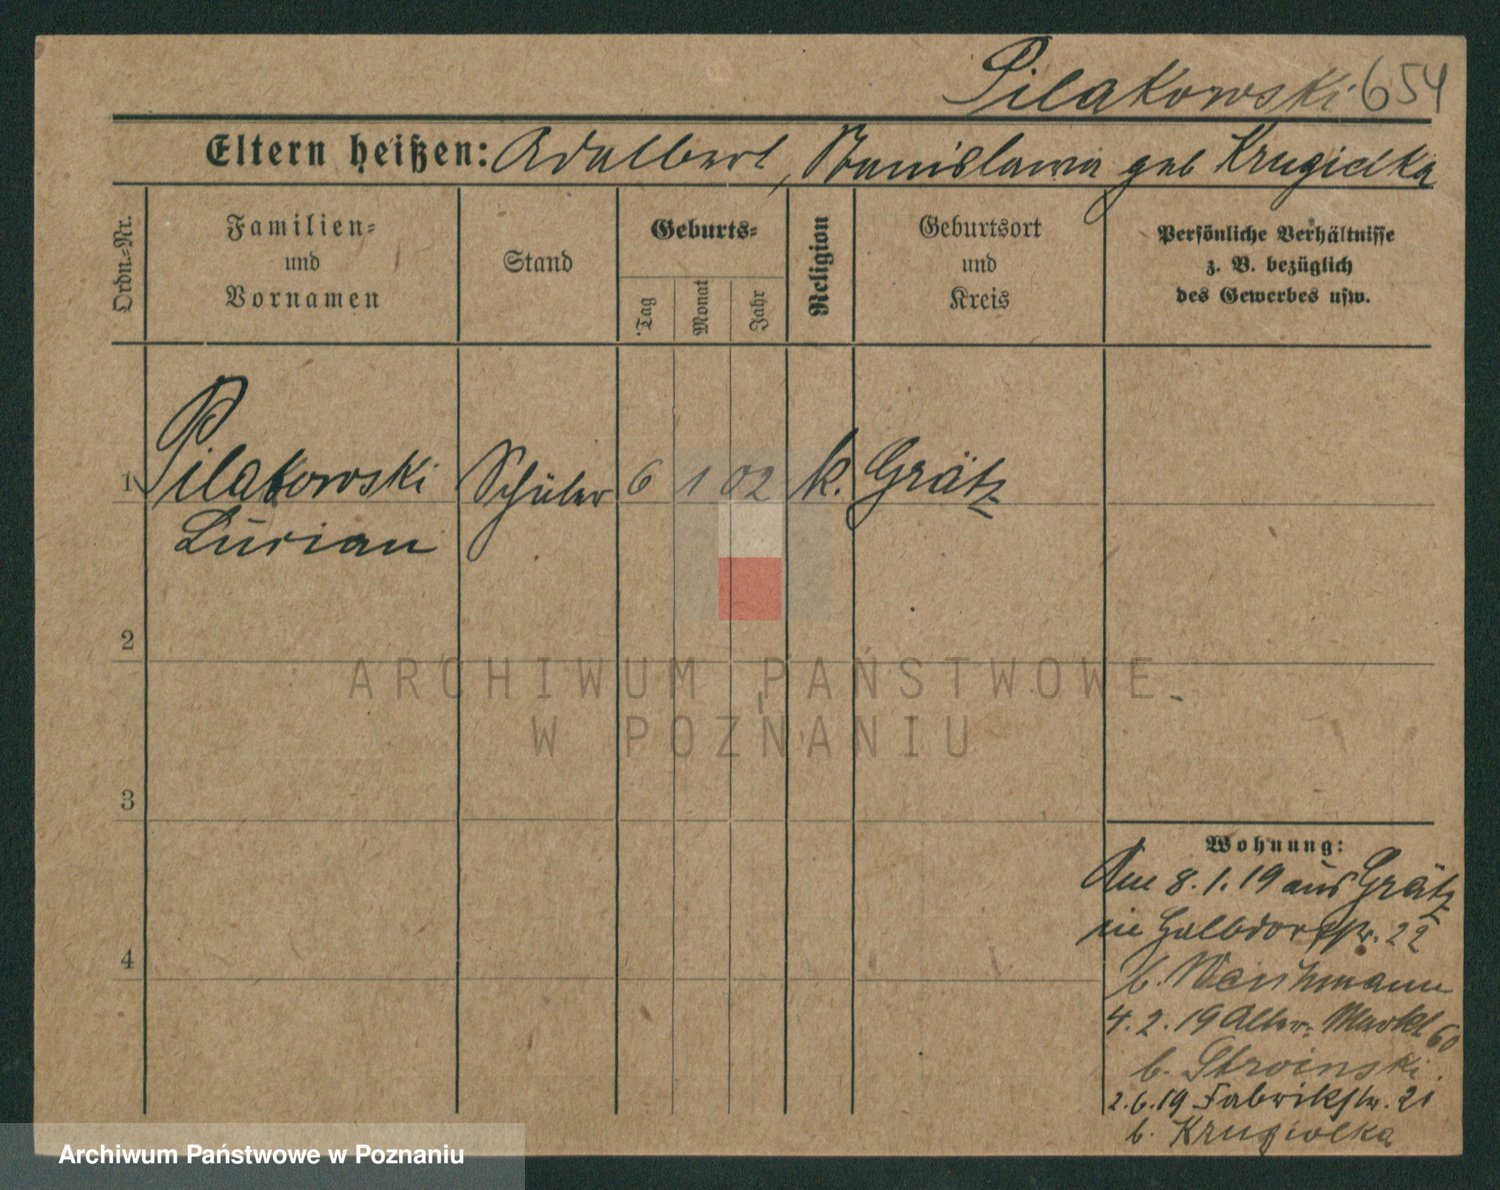 Pilakowski 654
Eltern heißen: Adalbert, Stanislawa geb Krugiolka
Ordn.-Nr.
Familien-
und
Vornamen
Stand
Geburts-
Tag
Monat
Jahr
Religion
Geburtsort
und
Kreis
Persönliche Verhältnisse
z. B. bezüglich
des Gewerbes usw.
1 Pilakowski Schüler 6 1 02 k. Grätz
Lucian
2
3
4
Wohnung:
Am 8.1.19 aus Grätz
in Halbdorfstr. 22
b.
4.2.19 Alter-Markt 60
b. Stroinski.
2.6.19 Fabrikstr. 21
b. Krugiolka
ARCHIWUM PAŃSTWOWE
W POZNANIU
Archiwum Państwowe w Poznaniu